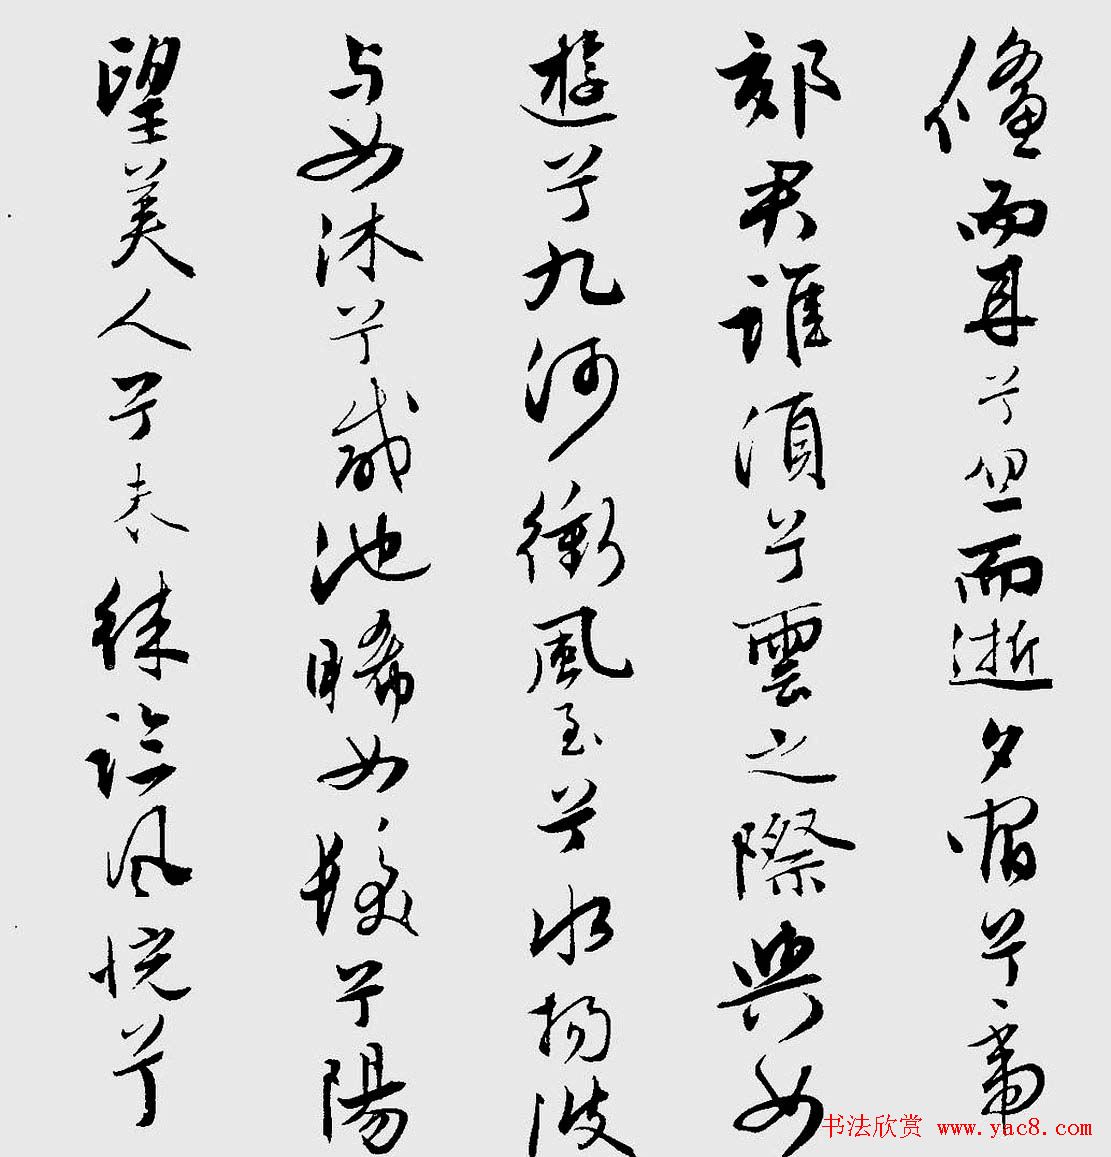 儵而來兮忽而逝夕宿兮帝
郊君誰須兮雲之際與女
遊兮九河衝風至兮水揚波
与女沐兮咸池晞女髮兮陽
望美人兮未徠臨風怳兮
书法欣赏 www.yac8.com